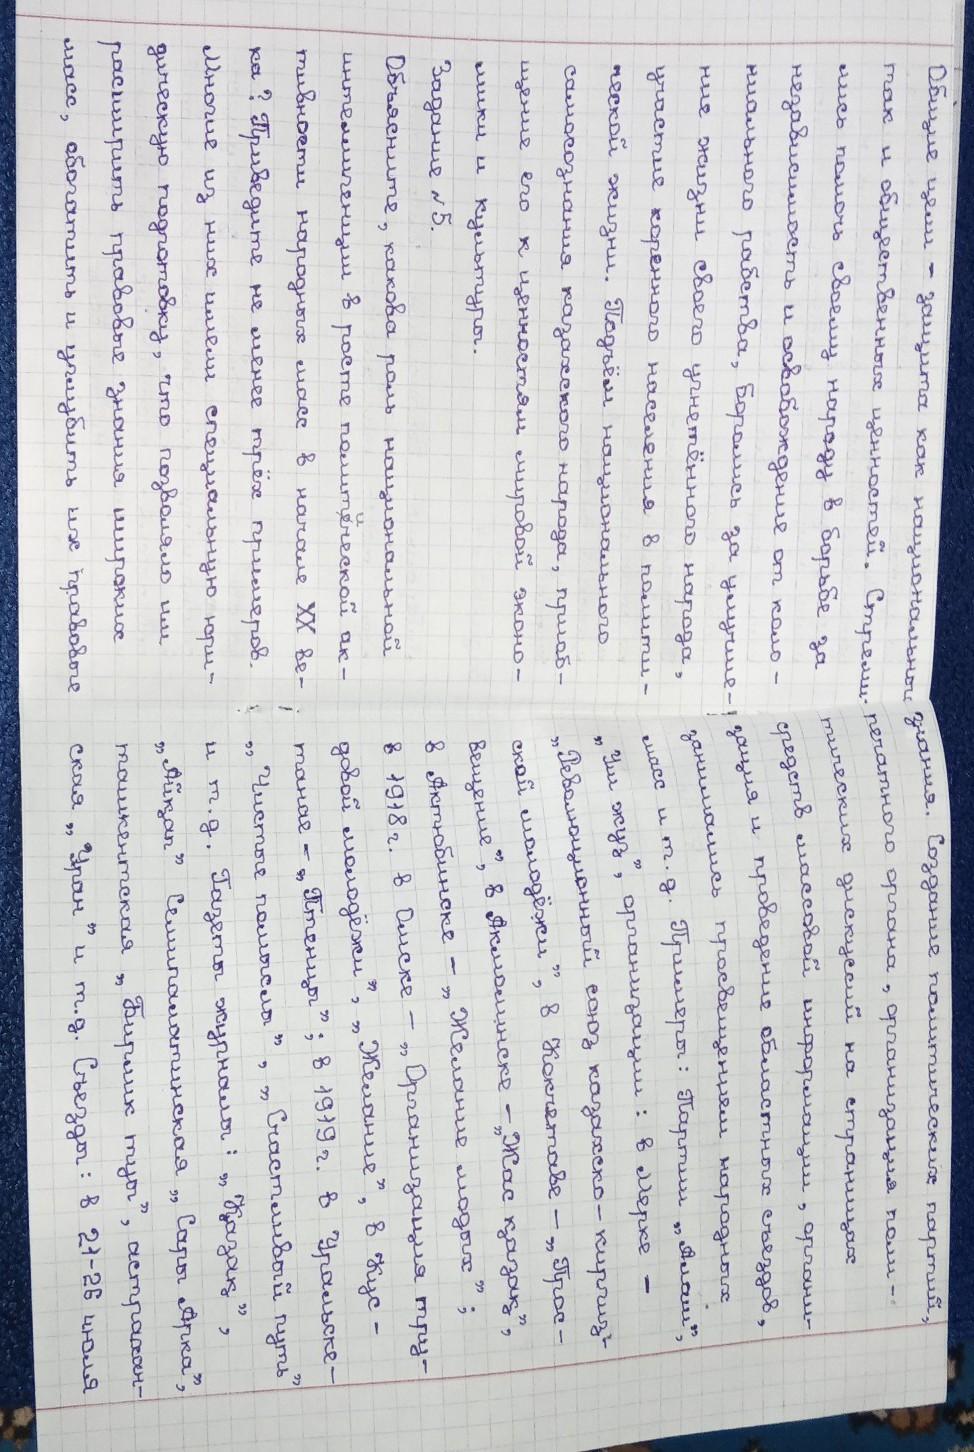 Общие цели – защита как национальных
так и общественных ценностей. Стреми-
лись помочь своему народу в борьбе за
независимость и освобождение от коло-
ниального рабства, боролись за улучше-
ние жизни своего угнетённого народа,
участие коренного населения в полити-
ческой жизни. Подъём национального
самосознания казахского народа, приоб-
щение его к ценностям мировой эконо-
мики и культуры.
Задание №5.
Объясните, какова роль национальной
интеллигенции в росте политической ак-
тивности народных масс в начале XX ве-
ка? Приведите не менее трёх примеров.
Многие из них имели специальную юри-
дическую подготовку, что позволяло им
расширить правовые знания широких
масс, обогатить и углубить их правовые
знания. Создание политических партий,
печатного органа, организация поли-
тических дискуссий на страницах
средств массовой информации, органи-
зация и проведение областных съездов,
занимались просвещением народных
масс и т.д. Примеры: Партии „Алаш“,
„Уш жуз“, организации: в Мерке –
„Революционный союз казахско-киргиз-
ской молодёжи“, в Кокчетаве – „Прос-
вещение“, в Акмолинске – „Жас қазақ“,
в Актюбинске – „Желание модых“;
в 1918 г. в Омске – „Организация тру-
довой молодёжи“, „Желание“, в Кус-
танае – „Птенцы“; в 1919 г. в Уральске –
„Чистые помыслы“, „Счастливый путь“
и т.д. Газеты журналы: „Қазақ“,
„Айқап“ Семипалатинская „Сары Арка“,
ташкентская „Бирлик туы“, астрахан-
ская „Уран“ и т.д. Съезды: в 21-26 июля